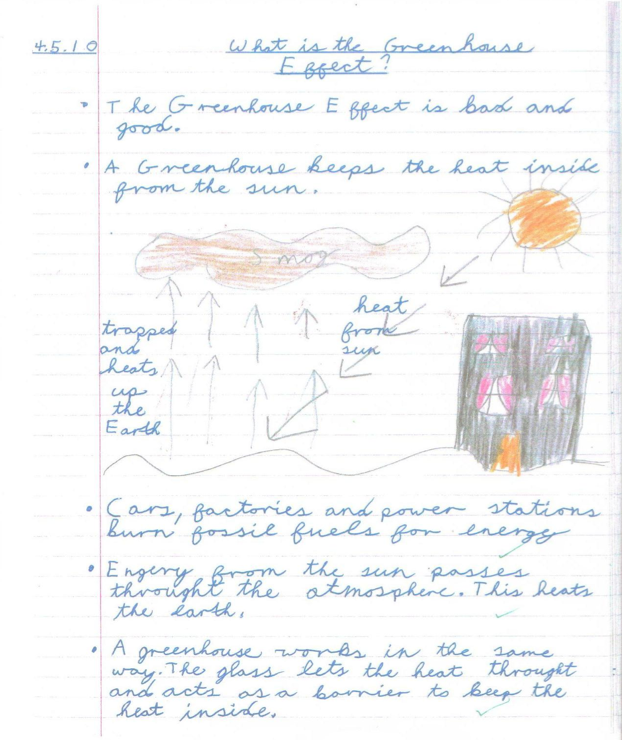 4.5.10
What is the Greenhouse
Effect?
• The Greenhouse Effect is bad and
good.
• A Greenhouse keeps the heat inside
from the sun.
Smog
heat
from
sun
trapped
and
heats
up
the
Earth
• Cars, factories and power stations
burn fossil fuels for energy
• Engery from the sun passes
throught the atmosphere. This heats
the earth.
• A greenhouse works in the same
way. The glass lets the heat throught
and acts as a barrier to keep the
heat inside.